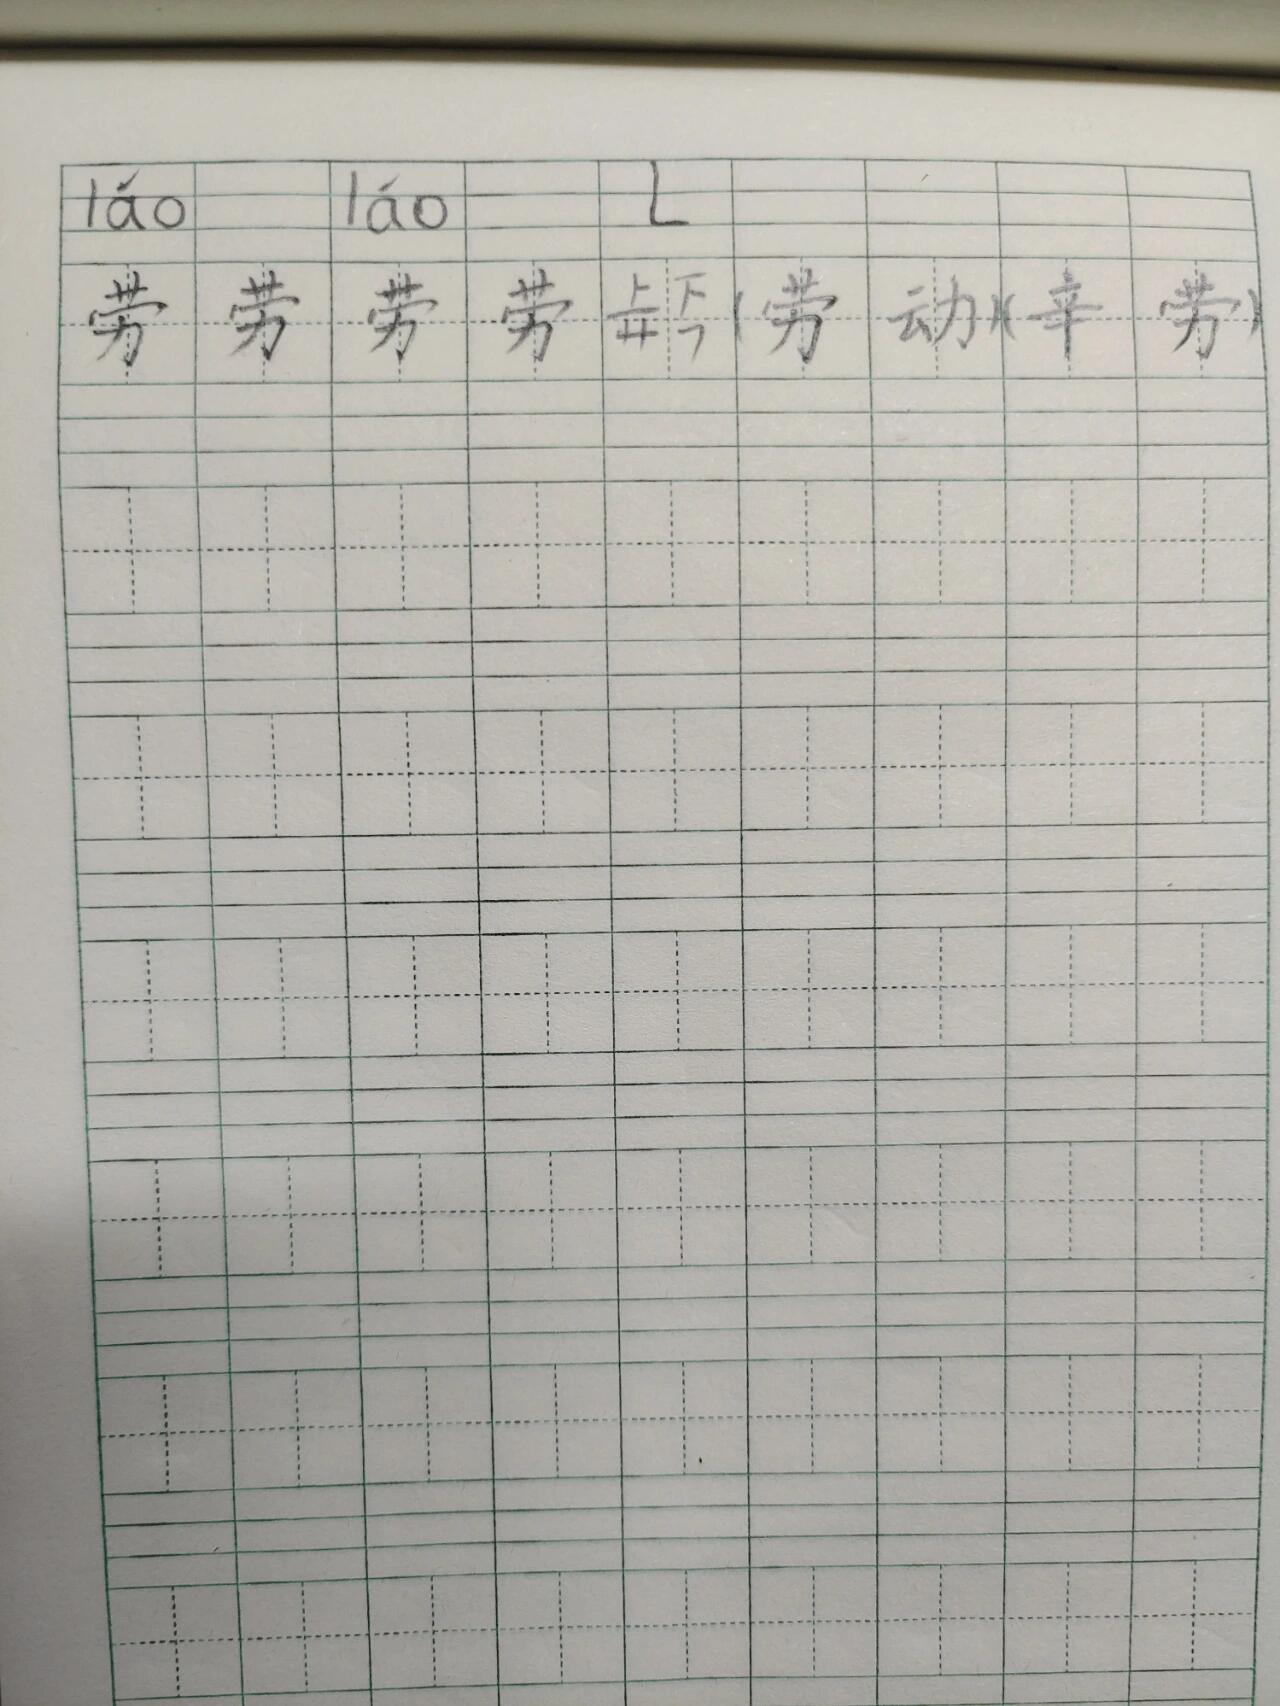 láo láo L
劳 劳 劳 劳 上下 (劳 动)(辛 劳)